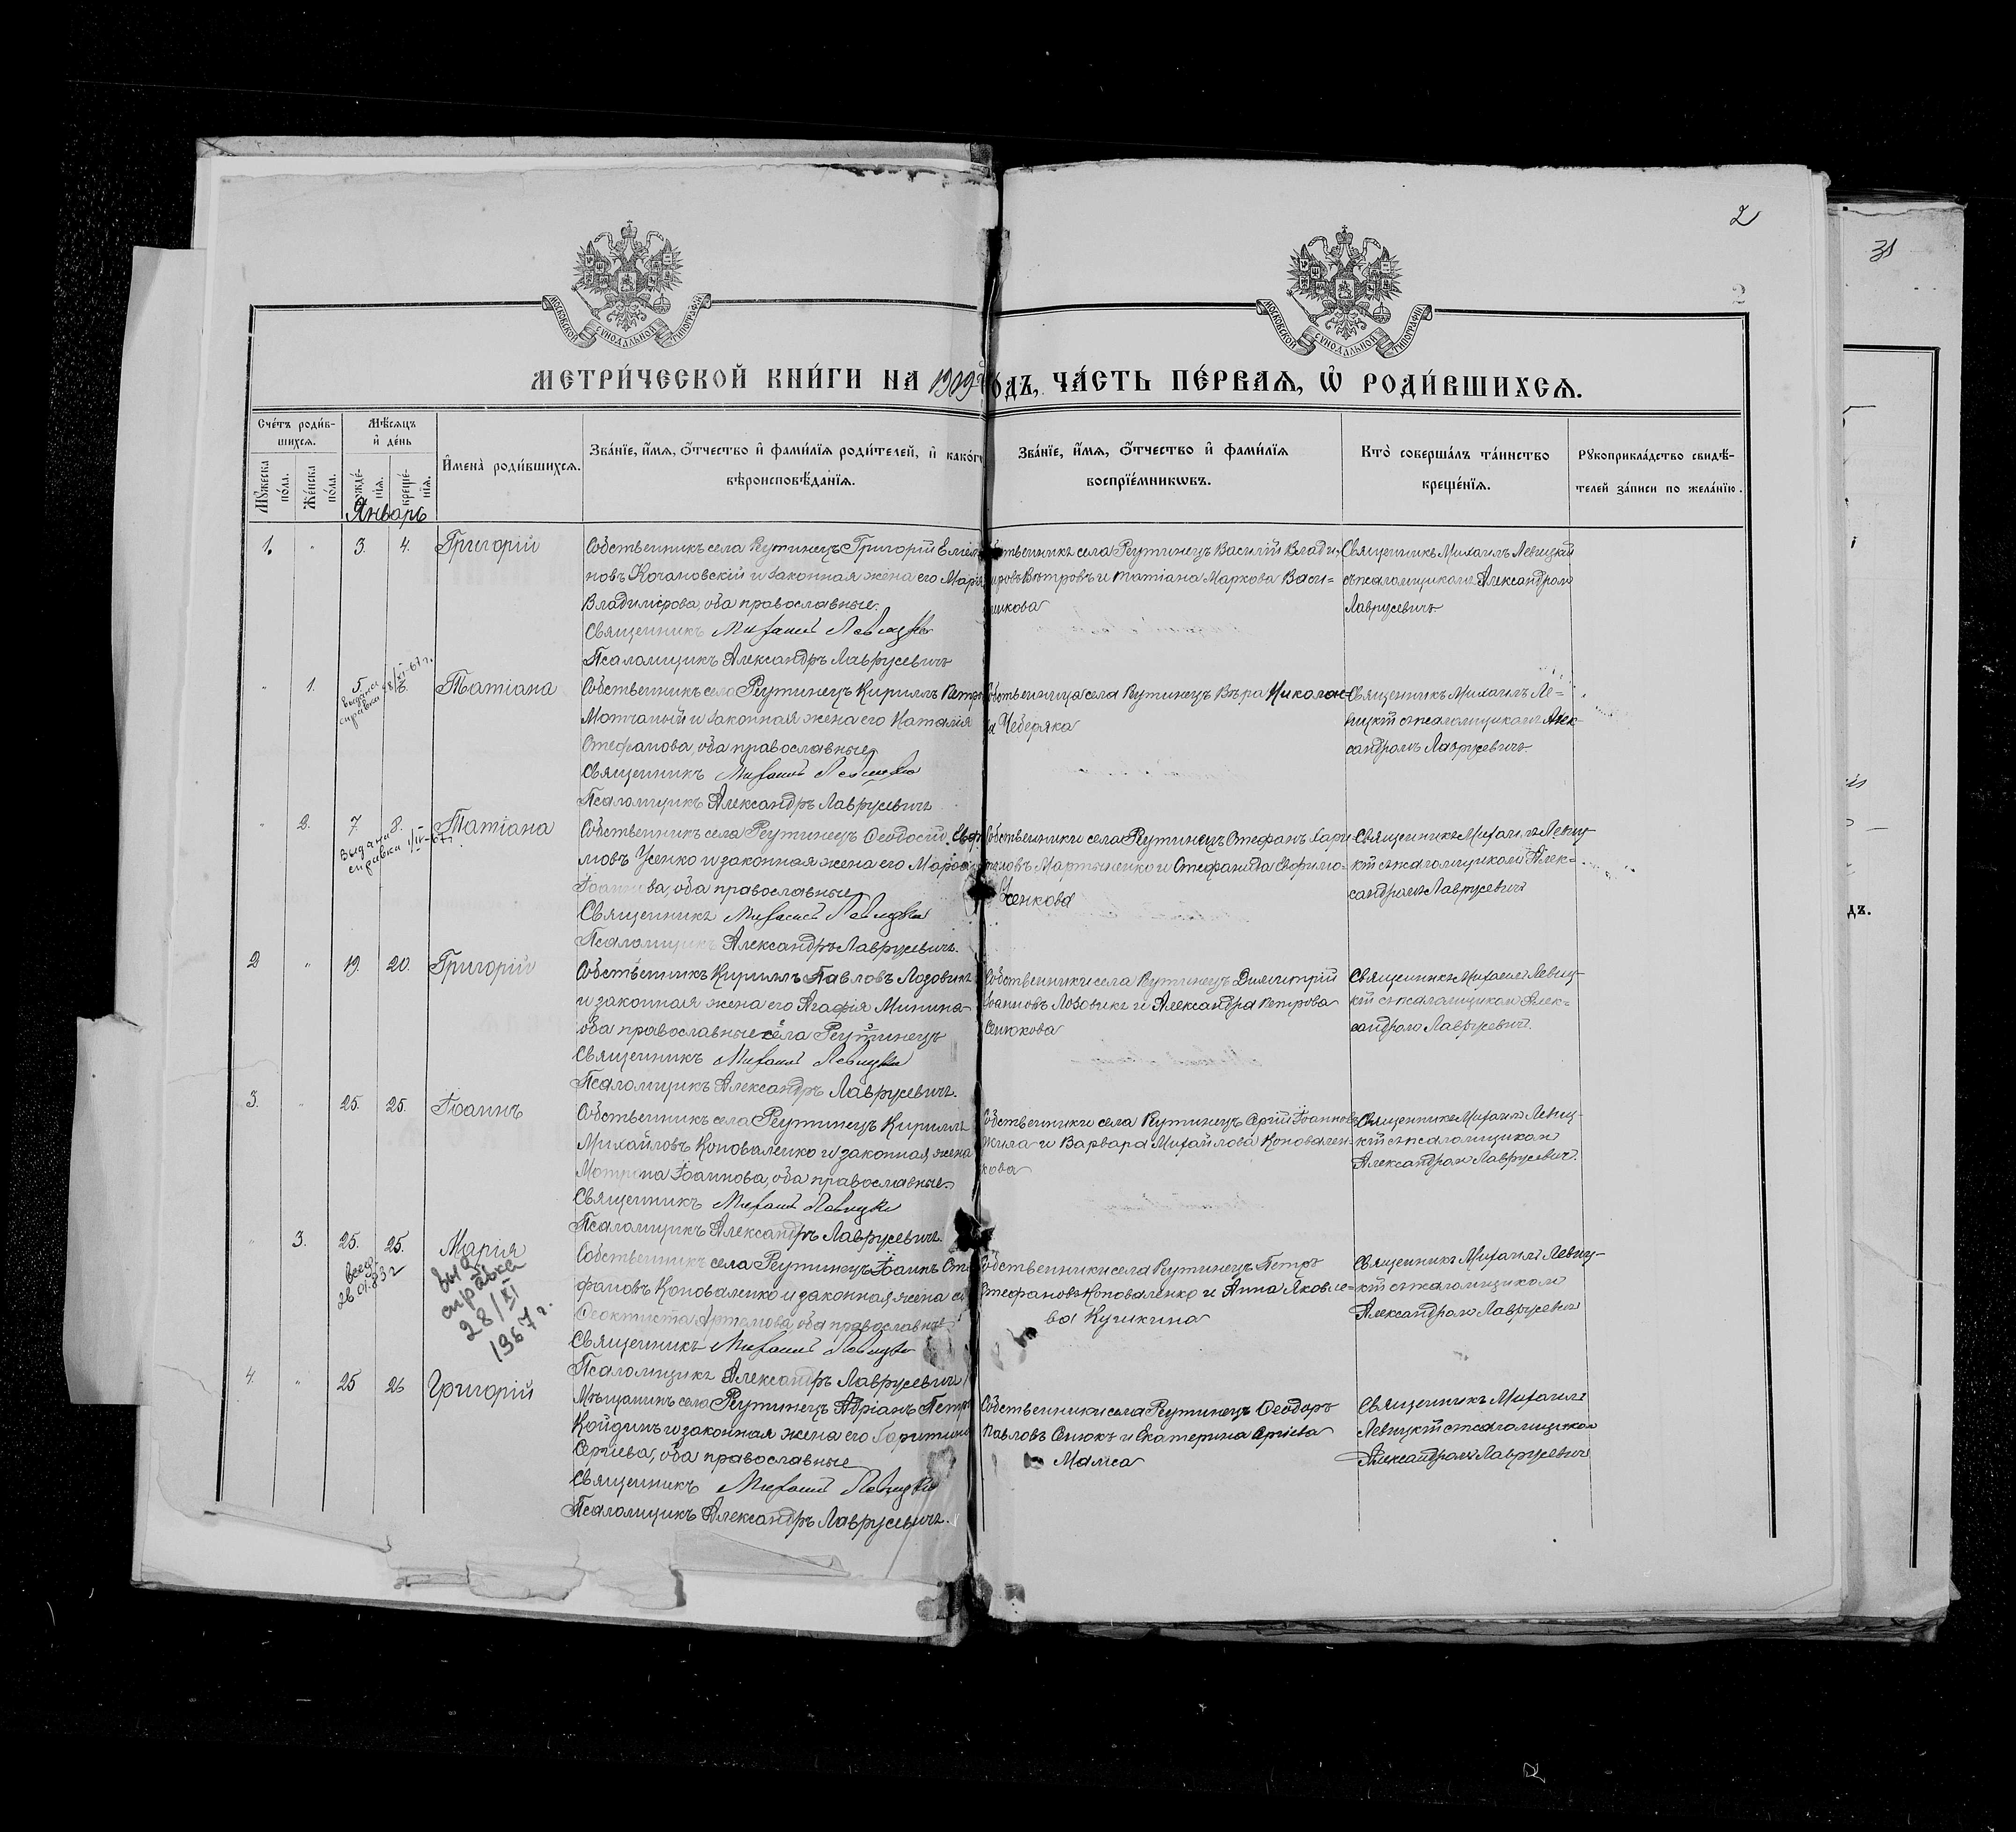 2
31
2
МОСКОВСКОЙ СУНОДАЛЬНОЙ ТИПОГРАФІИ
МОСКОВСКОЙ СУНОДАЛЬНОЙ ТИПОГРАФІИ
МЕТРИ́ЧЕСКОЙ КНИ́ГИ НА 1909 го́дъ, ЧА́СТЬ ПЕ́РВАѦ, Ѡ҆ РОДИ́ВШИХСѦ.
Сче́тъ роди́в-
шихсѧ.
Мꙋ́жеска по́ла.
Же́нска по́ла.
Мѣ́сѧцъ
и҆ де́нь
рожде́-
нїѧ.
креще́-
нїѧ.
И҆мена̀ роди́вшихсѧ.
Зва́нїе, и҆́мѧ, ѻ҆́тчество и҆ фами́лїѧ роди́телей, и҆ како́гѡ
вѣроисповѣ́данїѧ.
Зва́нїе, и҆́мѧ, ѻ҆́тчество и҆ фами́лїѧ
воспрїе́мникѡвъ.
Кто̀ соверша́лъ та́инство
креще́нїѧ.
Рꙋкоприкла́дство свидѣ́-
телей за́писи по жела́нїю.
Январь
1. " 3. 4. Григорій
Собственникъ села Реутинецъ Григорій Емелья
новъ Кочановскій и законная жена его Марія
Владимірова, оба православные.
Священникъ Михаилъ Левицкій
Псаломщикъ Александръ Лаврусевичъ
Собственникъ села Реутинецъ Василій Влади-
міровъ Вѣтровъ и Татіана Маркова Васи-
кова
Священникъ Михаилъ Левицкій
съ псаломщикомъ Александромъ
Лаврусевичъ
" 1. 5. 6. Татіана
Выдана
справка 28/XI-67 г.
Собственникъ села Реутинецъ Кириллъ Петро
Мотчаный и законная жена его Наталія
Стефанова, оба православные
Священникъ Михаилъ Левицкій
Псаломщикъ Александръ Лаврусевичъ
Собственница села Реутинецъ Вѣра Николае-
ва Чеберяка
Священникъ Михаилъ Ле-
вицкій съ псаломщикомъ Алек-
сандромъ Лаврусевичъ
" 2. 7. 8. Татіана
Выдана
справка
Собственникъ села Реутинецъ Ѳеодосій Евфи
мовъ Усенко и законная жена его Марѳа
Іоаннова, оба православные
Священникъ Михаилъ Левицкій
Псаломщикъ Александръ Лаврусевичъ.
Собственники села Реутинецъ Стефанъ Хари-
тоновъ Мартыненко и Стефанида Евфимо-
Усенкова
Священникъ Михаилъ Левиц-
кій съ псаломщикомъ Алек-
сандромъ Лаврусевичъ
2 " 19. 20. Григорій
Собственникъ Кириллъ Павловъ Лозовикъ
и законная жена его Агафія Минина
оба православные села Реутинецъ
Священникъ Михаилъ Левицкій
Псаломщикъ Александръ Лаврусевичъ.
Собственники села Реутинецъ Димитрій
Іоанновъ Лозовикъ и Александра Петрова
Сенюкова
Священникъ Михаилъ Левиц-
кій съ псаломщикомъ Алек-
сандромъ Лаврусевичъ.
3. " 25. 25. Іоаннъ
Собственникъ села Реутинецъ Кириллъ
Михайловъ Коноваленко и законная жена
Мотрина Іоаннова, оба православные.
Священникъ Михаилъ Левицкій
Псаломщикъ Александръ Лаврусевичъ.
Собственники села Реутинецъ Сергій Іоанновъ
Жила и Варвара Михайлова Коновален-
кова
Священникъ Михаилъ Левиц-
кій съ псаломщикомъ
Александромъ Лаврусевичъ.
" 3. 25. 25. Марія
28.01.83 г
справка
28/XI
1967 г.
Собственникъ села Реутинецъ Іоаннъ Сте
фановъ Коноваленко и законная жена его
Ѳеоктиста Артемова, оба православные
Священникъ Михаилъ Левицкій
Псаломщикъ Александръ Лаврусевичъ
Собственники села Реутинецъ Петръ
Стефановъ Коноваленко и Анна Яковле-
ва Кучикина
Священникъ Михаилъ Левиц-
кій съ псаломщикомъ
Александромъ Лаврусевичъ
4. " 25 26 Григорій
Мѣщанинъ села Реутинецъ Адріанъ Петро
Койдинъ и законная жена его Харитина
Сергіева, оба православные
Священникъ Михаилъ Левицкій
Псаломщикъ Александръ Лаврусевичъ.
Собственники села Реутинецъ Ѳеодоръ
Павловъ Сенюкъ и Екатерина Сергіева
Мамса
Священникъ Михаилъ
Левицкій съ псаломщикомъ
Александромъ Лаврусевичъ
дъ.